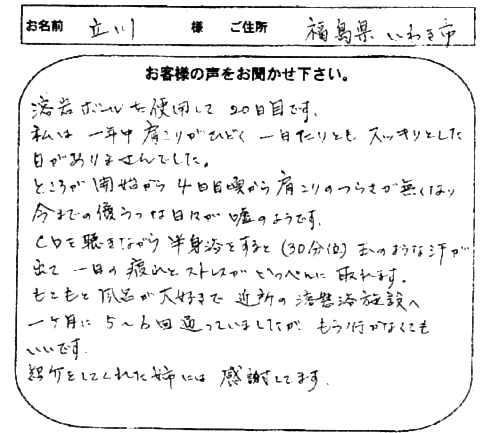 お名前 立川 様 ご住所 福島県いわき市
お客様の声をお聞かせ下さい。
溶岩ボールを使用して 20日目です。
私は 一年中 肩こりがひどく 一日たりとも スッキリとした
日がありませんでした。
ところが 開始から 4日目頃から 肩こりのつらさが無くなり
今までの憂うつな日々が 嘘のようです。
CDを聴きながら 半身浴をすると (30分位) 玉のような汗が
出て 一日の疲れとストレスが いっぺんに 取れます。
もともと 風呂が大好きで 近所の 溶盤浴施設へ
一ヶ月に 5〜6回通っていましたが もう行かなくても
いいです。
紹介をしてくれた姉には 感謝してます。